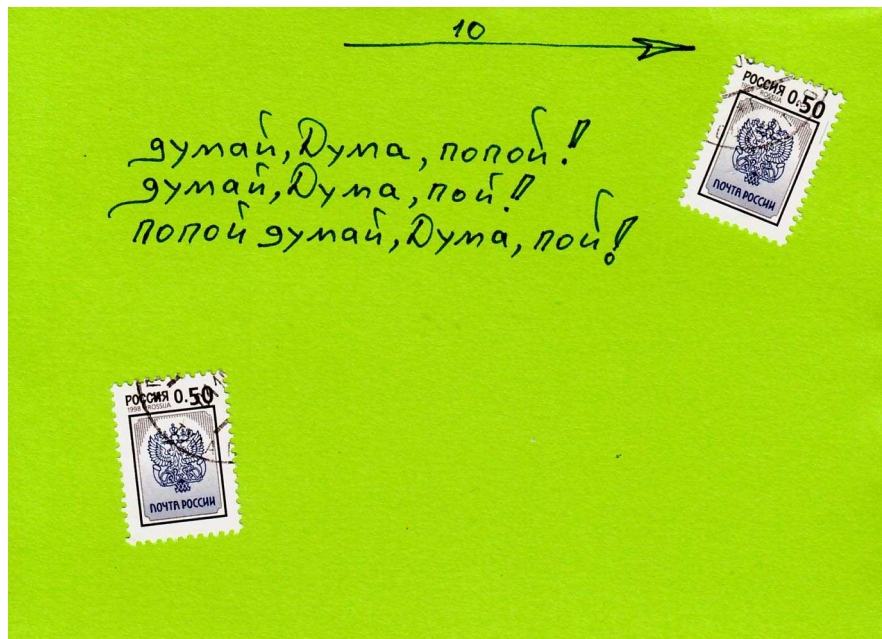 10
думай, Дума, попой!
думай, Дума, пой!
попой думай, Дума, пой!
РОССИЯ 0.50
1998 ROSSIJA
ПОЧТА РОССИИ
РОССИЯ 0.50
1998 ROSSIJA
ПОЧТА РОССИИ